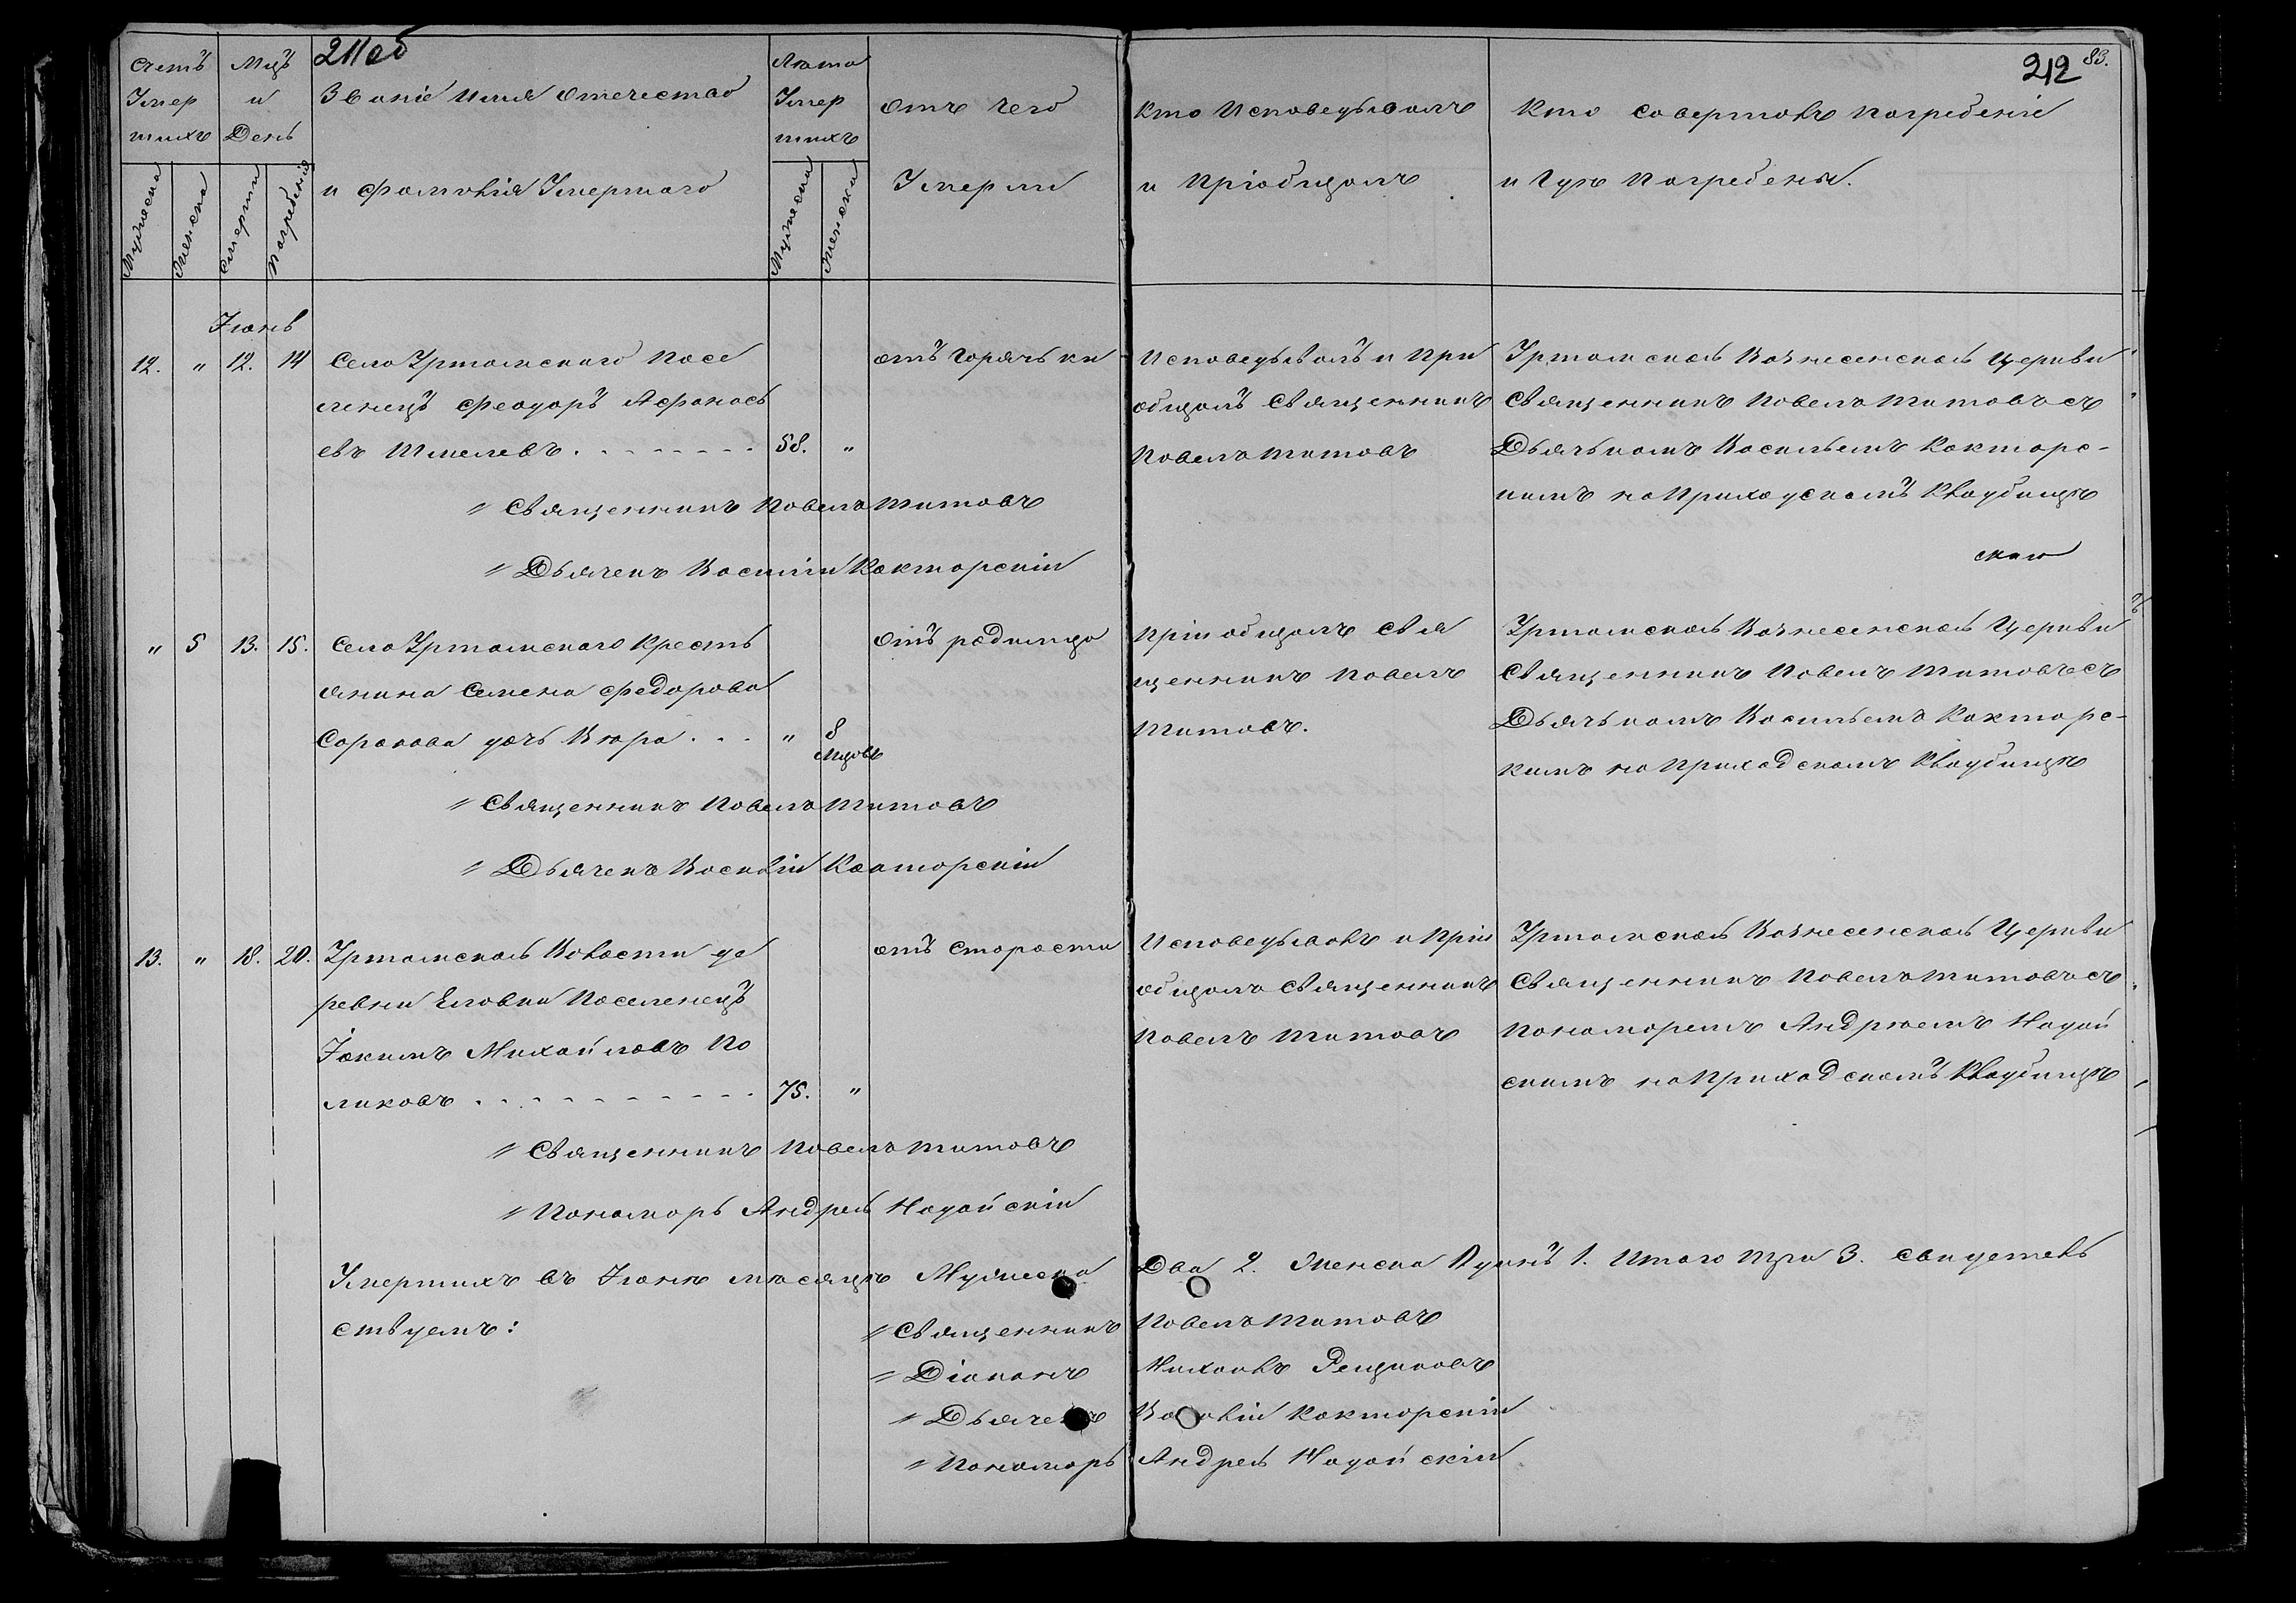 211об
Счетъ Умер шихъ
Мужеска
Женска
Мцъ и День
Смерти
Погребенія
Званіе Имя Отечество
и Фамилія Умершаго
Лѣта Умер шихъ
Мужеска
Женска
Отъ чего
Умерли
Кто Исповедывалъ
и Пріобщалъ
212 83.
Кто Совершалъ Погребеніе
и Гдѣ Погребены.
Іюнь
12. " 12. 14
Села Уртамскаго Посе
ленецъ Феодоръ Афанась
евъ Шмелевъ . - - - - - - - 58. "
отъ Горячьки
Исповедывалъ и При
общалъ Священникъ
Павелъ Титовъ
Уртамской Вознесенской Церкви
Священникъ Павелъ Титовъ съ
Дьячькомъ Васильемъ Кокторс-
кимъ на Приходскомъ Кладбищѣ
" Священникъ Павелъ Титовъ
" Дьячекъ Василій Кокторскій
" 5 13. 15.
Села Уртамскаго Кресть
янина Семена Федорова
Сорокова дочь Вѣра . - - " 8
Мцовъ
отъ родимца
Пріобщалъ Свя
щенникъ Павелъ
Титовъ.
Уртамской Вознесенской Церкви
Священникъ Павелъ Титовъ съ
Дьячькомъ Васильемъ Кокторс-
кимъ на Приходскомъ Кладбищѣ
" Священникъ Павелъ Титовъ
" Дьячекъ Василій Кокторскій
13. " 18. 20.
Уртамской Волости де
ревни Еловки Поселенецъ
Іакимъ Михайловъ По
ляковъ . - - - - - - - - - - 75. "
отъ Старости
Исповедывалъ и Прі
общалъ Священникъ
Павелъ Титовъ
Уртамской Вознесенской Церкви
Священникъ Павелъ Титовъ съ
Пономоремъ Андрѣемъ Нодой
скимъ на Приходскомъ Кладбищѣ
" Священникъ Павелъ Титовъ
" Пономорь Андрей Нодойскій
Умершихъ въ Іюнѣ мѣсяцѣ Мужеска Два 2. Женска Одинъ 1. Итого три 3. Свидетель
ствуемъ:
" Священникъ Павелъ Титовъ
" Діаконъ Михаилъ Рещиковъ
" Дьячекъ Василій Кокторскій
" Пономорь Андрей Нодойскій